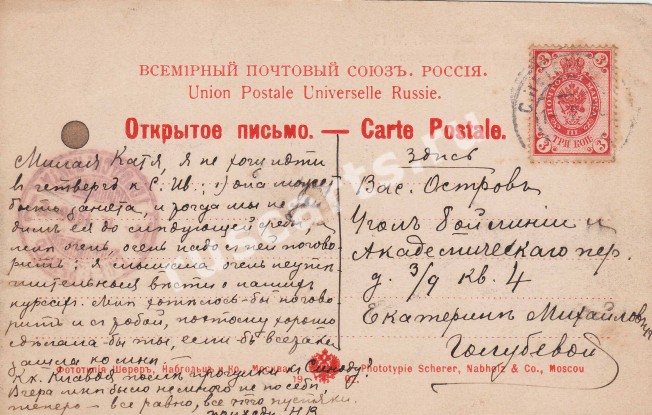 ВСЕМІРНЫЙ ПОЧТОВЫЙ СОЮЗЪ. РОССІЯ.
Union Postale Universelle Russie.
Открытое письмо. — Carte Postale.
3 3
ТРИ КОП.
3 3
Милая Катя, я не хочу идти
в четвергъ къ С. Ив.; она можетъ
быть занята, и тогда мы не
димъ ея до следующей среды, а
мнѣ очень, очень надо с ней погово-
рить; я слышала очень неутѣ-
шительныя вѣсти о нашихъ
курсахъ. Мнѣ хотѣлось-бы погово-
рить и с тобой, поэтому хорошо
сдѣлала бы ты, если бъ всетаки
зашла ко мнѣ.
послѣ прогулки къ Синоду?
Вчера мнѣ было немного не по себѣ,
теперь — все равно, все это пустяки.
приходи Н.В.
Здѣсь
Вас. Островъ
Уголъ 6ой линіи и
Академическаго пер.
д. 3/9 кв. 4
Екатеринѣ Михайловнѣ
Голубевой
Фототипія Шереръ, Набгольцъ и Ко., Москва. 190 . Phototypie Scherer, Nabholz & Co., Moscou